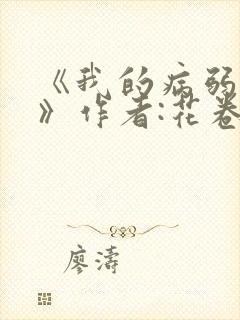 《我的病弱
》作者:花卷
廖濤